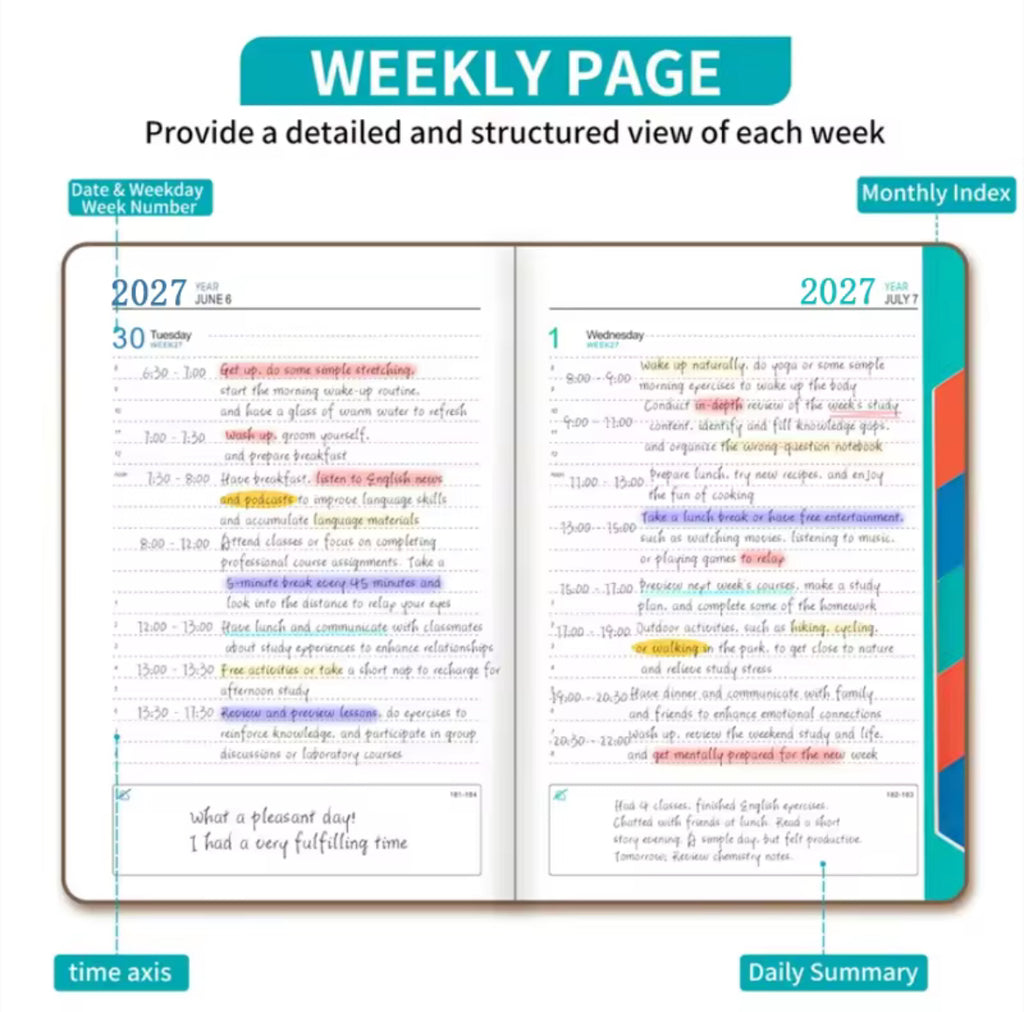 WEEKLY PAGE
Provide a detailed and structured view of each week
Date & Weekday
Week Number
Monthly Index
2027 YEAR
JUNE 6
30 Tuesday
WEEK27
6:30 - 7:00 Get up, do some simple stretching,
start the morning wake-up routine,
and have a glass of warm water to refresh
7:00 - 7:30 Wash up, groom yourself,
and prepare breakfast
7:30 - 8:00 Have breakfast, listen to English news
and podcasts to improve language skills
and accumulate language materials
8:00 - 12:00 Attend classes or focus on completing
professional course assignments. Take a
5-minute break every 45 minutes and
look into the distance to relax your eyes
12:00 - 13:00 Have lunch and communicate with classmates
about study experiences to enhance relationships
13:00 - 13:30 Free activities or take a short nap to recharge for
afternoon study
13:30 - 17:30 Review and preview lessons, do exercises to
reinforce knowledge, and participate in group
discussions or laboratory courses
181-184
What a pleasant day!
I had a very fulfilling time
2027 YEAR
JULY 7
1 Wednesday
WEEK27
8:00 - 9:00 Wake up naturally, do yoga or some simple
morning exercises to wake up the body
9:00 - 11:00 Conduct in-depth review of the week's study
content, identify and fill knowledge gaps,
and organize the wrong-question notebook
11:00 - 13:00 Prepare lunch, try new recipes, and enjoy
the fun of cooking
13:00 - 15:00 Take a lunch break or have free entertainment,
such as watching movies, listening to music,
or playing games to relax
15:00 - 17:00 Preview next week's courses, make a study
plan, and complete some of the homework
17:00 - 19:00 Outdoor activities, such as hiking, cycling,
or walking in the park, to get close to nature
and relieve study stress
19:00 - 20:30 Have dinner and communicate with family
and friends to enhance emotional connections
20:30 - 22:00 Wash up, review the weekend study and life,
and get mentally prepared for the new week
182-183
Had 4 classes, finished English exercises.
Chatted with friends at lunch. Read a short
story evening. A simple day, but felt productive.
Tomorrow: Review chemistry notes.
time axis
Daily Summary